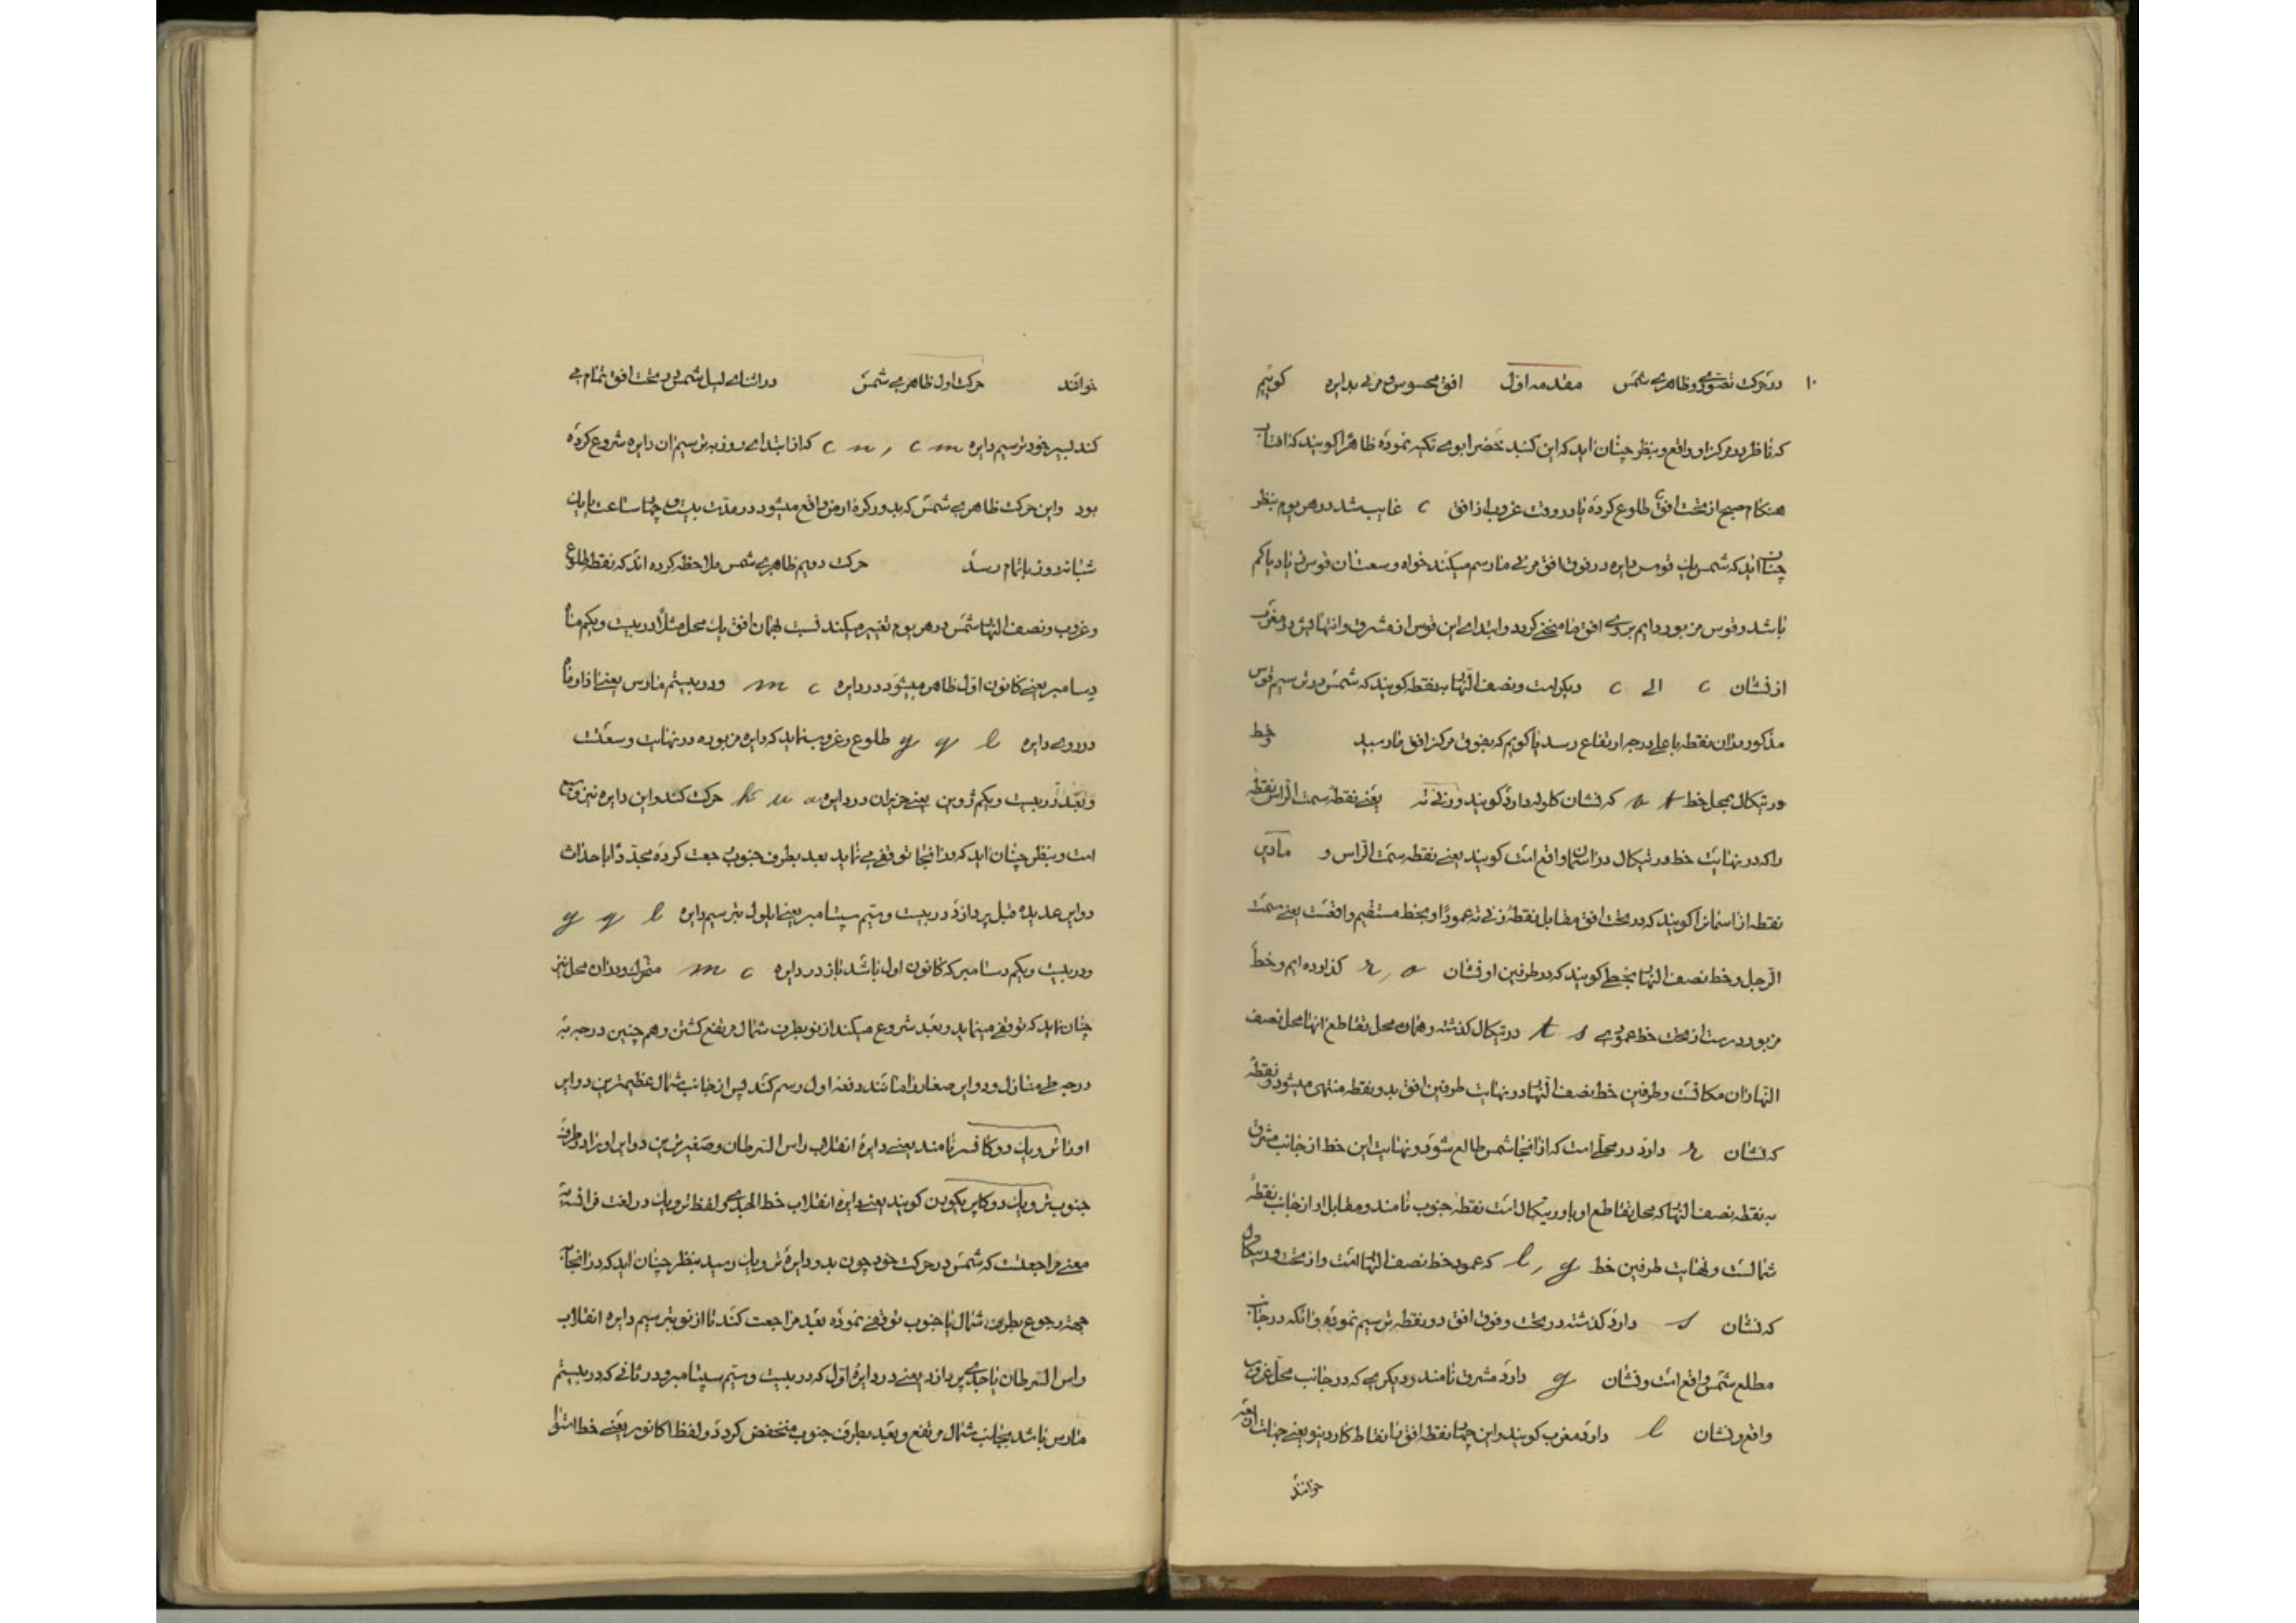 ۱۰ در حرکت تصوری و ظاهری شمس مقدمه اول افق محسوس و مرئی بدایره کوئیم
که ناظر در مرکز او واقع و بنظر چنان اید که این کنبد خضرا بوی تکیه نموده ظاهرا کویند که افتاب
هنکام صبح از تحت افق c طلوع کرده یا در وقت غروب از افق c غایب شد در هر یوم بنظر
چنان اید که شمس یک قوس دایره در فوق افق مرئی ما رسم میکند خواه وسعت ان قوس زیاد یا کم
باشد و قوس مزبور دایم بر روی افق ما منحنی کردد و ابتدای این قوس از مشرق و انتهایش در مغرب
از نشان c الی c دیکر است و نصف النهار بنقطه کویند که شمس در ترسیم قوس
مذکور بدان نقطه باعلی درجه ارتفاع رسد یا کویم که بفوق مرکز افق ما رسید و خط
ورتیکال بمحل خط t s که نشان کلوله دارد کویند و زنی ته یعنی نقطه سمت الراس نقطه
را که در نهایت خط ورتیکال در اسمان واقع است کویند یعنی نقطه سمت الراس و نادیر
نقطه از اسمانرا کویند که در تحت افق مقابل نقطه زنی ته عمودا و بخط مستقیم واقعست یعنی سمت
الرجل و خط نصف النهار بخطی کویند که در طرفین او نشان r, o کذارده ایم و خط
مزبور درست از تحت خط عمودی t s ورتیکال کذشته و همان محل تقاطع انها محل نصف
النهار ان مکانست و طرفین خط نصف النهار در نهایت طرفین افق بدو نقطه منتهی میشود و نقطه
که نشان r دارد در محلی است که از انجا شمس طالع شود و نهایت این خط از جانب مشرق
به نقطه نصف النهار که محل تقاطع او با ورتیکال است نقطه جنوب نامند و مقابل او از جانب نقطه
شمالست و نهایت طرفین خط l, g که عمود خط نصف النهار است و از تحت ورتیکال
که نشان s دارد کذشته در تحت و فوق افق دو نقطه ترسیم نموده و انکه در جانب
مطلع شمس واقع است و نشان g دارد مشرق نامند و دیکری که در جانب محل غروب
واقع و نشان l دارد مغرب کویند و این چهار نقطه افق را نقاط کاردینو یعنی جهات اربعه
خوانند
خوانند حرکت اول ظاهری شمس در اثنای لیل شمس در تحت افق تمام می
کند بسیر خود ترسیم دایره c n, c m که از ابتدای روز به ترسیم ان دایره شروع کرده
بود و این حرکت ظاهری شمس که بدور کره ارض واقع میشود در مدت بیست و چهار ساعت یا یک
شبانه روز باتمام رسد حرکت دویم ظاهری شمس ملاحظه کرده اند که نقطه طلوع
و غروب و نصف النهار شمس در هر یوم تغییر میکند نسبت بهمان افق یک محل مثلا در بیست و یکم ماه
دیسامبر یعنی کانون اول ظاهر میشود در دایره m c و در بیستم مارس یعنی اذار ماه
در روی دایره g q l طلوع و غروب نماید که دایره مزبوره در نهایت وسعتست
و بعد در بیست و یکم ژوین یعنی حزیران در دایره k u a حرکت کند و این دایره نیز وسیع
است و بنظر چنان اید که در انجا توقفی می نماید بعد بطرف جنوب رجعت کرده مجددا باحداث
دوایر عدیده قبل پردازد در بیست و سیم سپتامبر یعنی ایلول بترسیم دایره g q l
و در بیست و یکم دسامبر که کانون اول باشد باز در دایره m c متحرک و در ان محل نیز
چنان نماید که توقفی مینماید و بعد شروع میکند از نو بطرف شمال مرتفع کشتن و هم چنین درجه به
درجه طی منازل و دوایر صغار را مانند دفعه اول رسم کند پس از جانب شمال عظیمترین دوایر
او را تروپیک دو کانسر نامند یعنی دایره انقلاب راس السرطان و صغیرترین دوایر او را در طرف
جنوب تروپیک دو کاپریکورن کویند یعنی دایره انقلاب خط الجدی و لفظ تروپیک در لغت فرانسه به
معنی مراجعتست که شمس در حرکت خود چون بدو دایره تروپیک رسید بنظر چنان اید که در انجا به
جهته رجوع بطرف شمال یا جنوب توقفی نموده بعد مراجعت کند تا از نو بترسیم دایره انقلاب
راس السرطان یا جدی پردازد یعنی در دایره اول که در بیست و سیم سپتامبر و در ثانی که در بیستم
مارس باشد بجانب شمال مرتفع و بعد بطرف جنوب منخفض کردد و لفظ اکاتور یعنی خط استوا